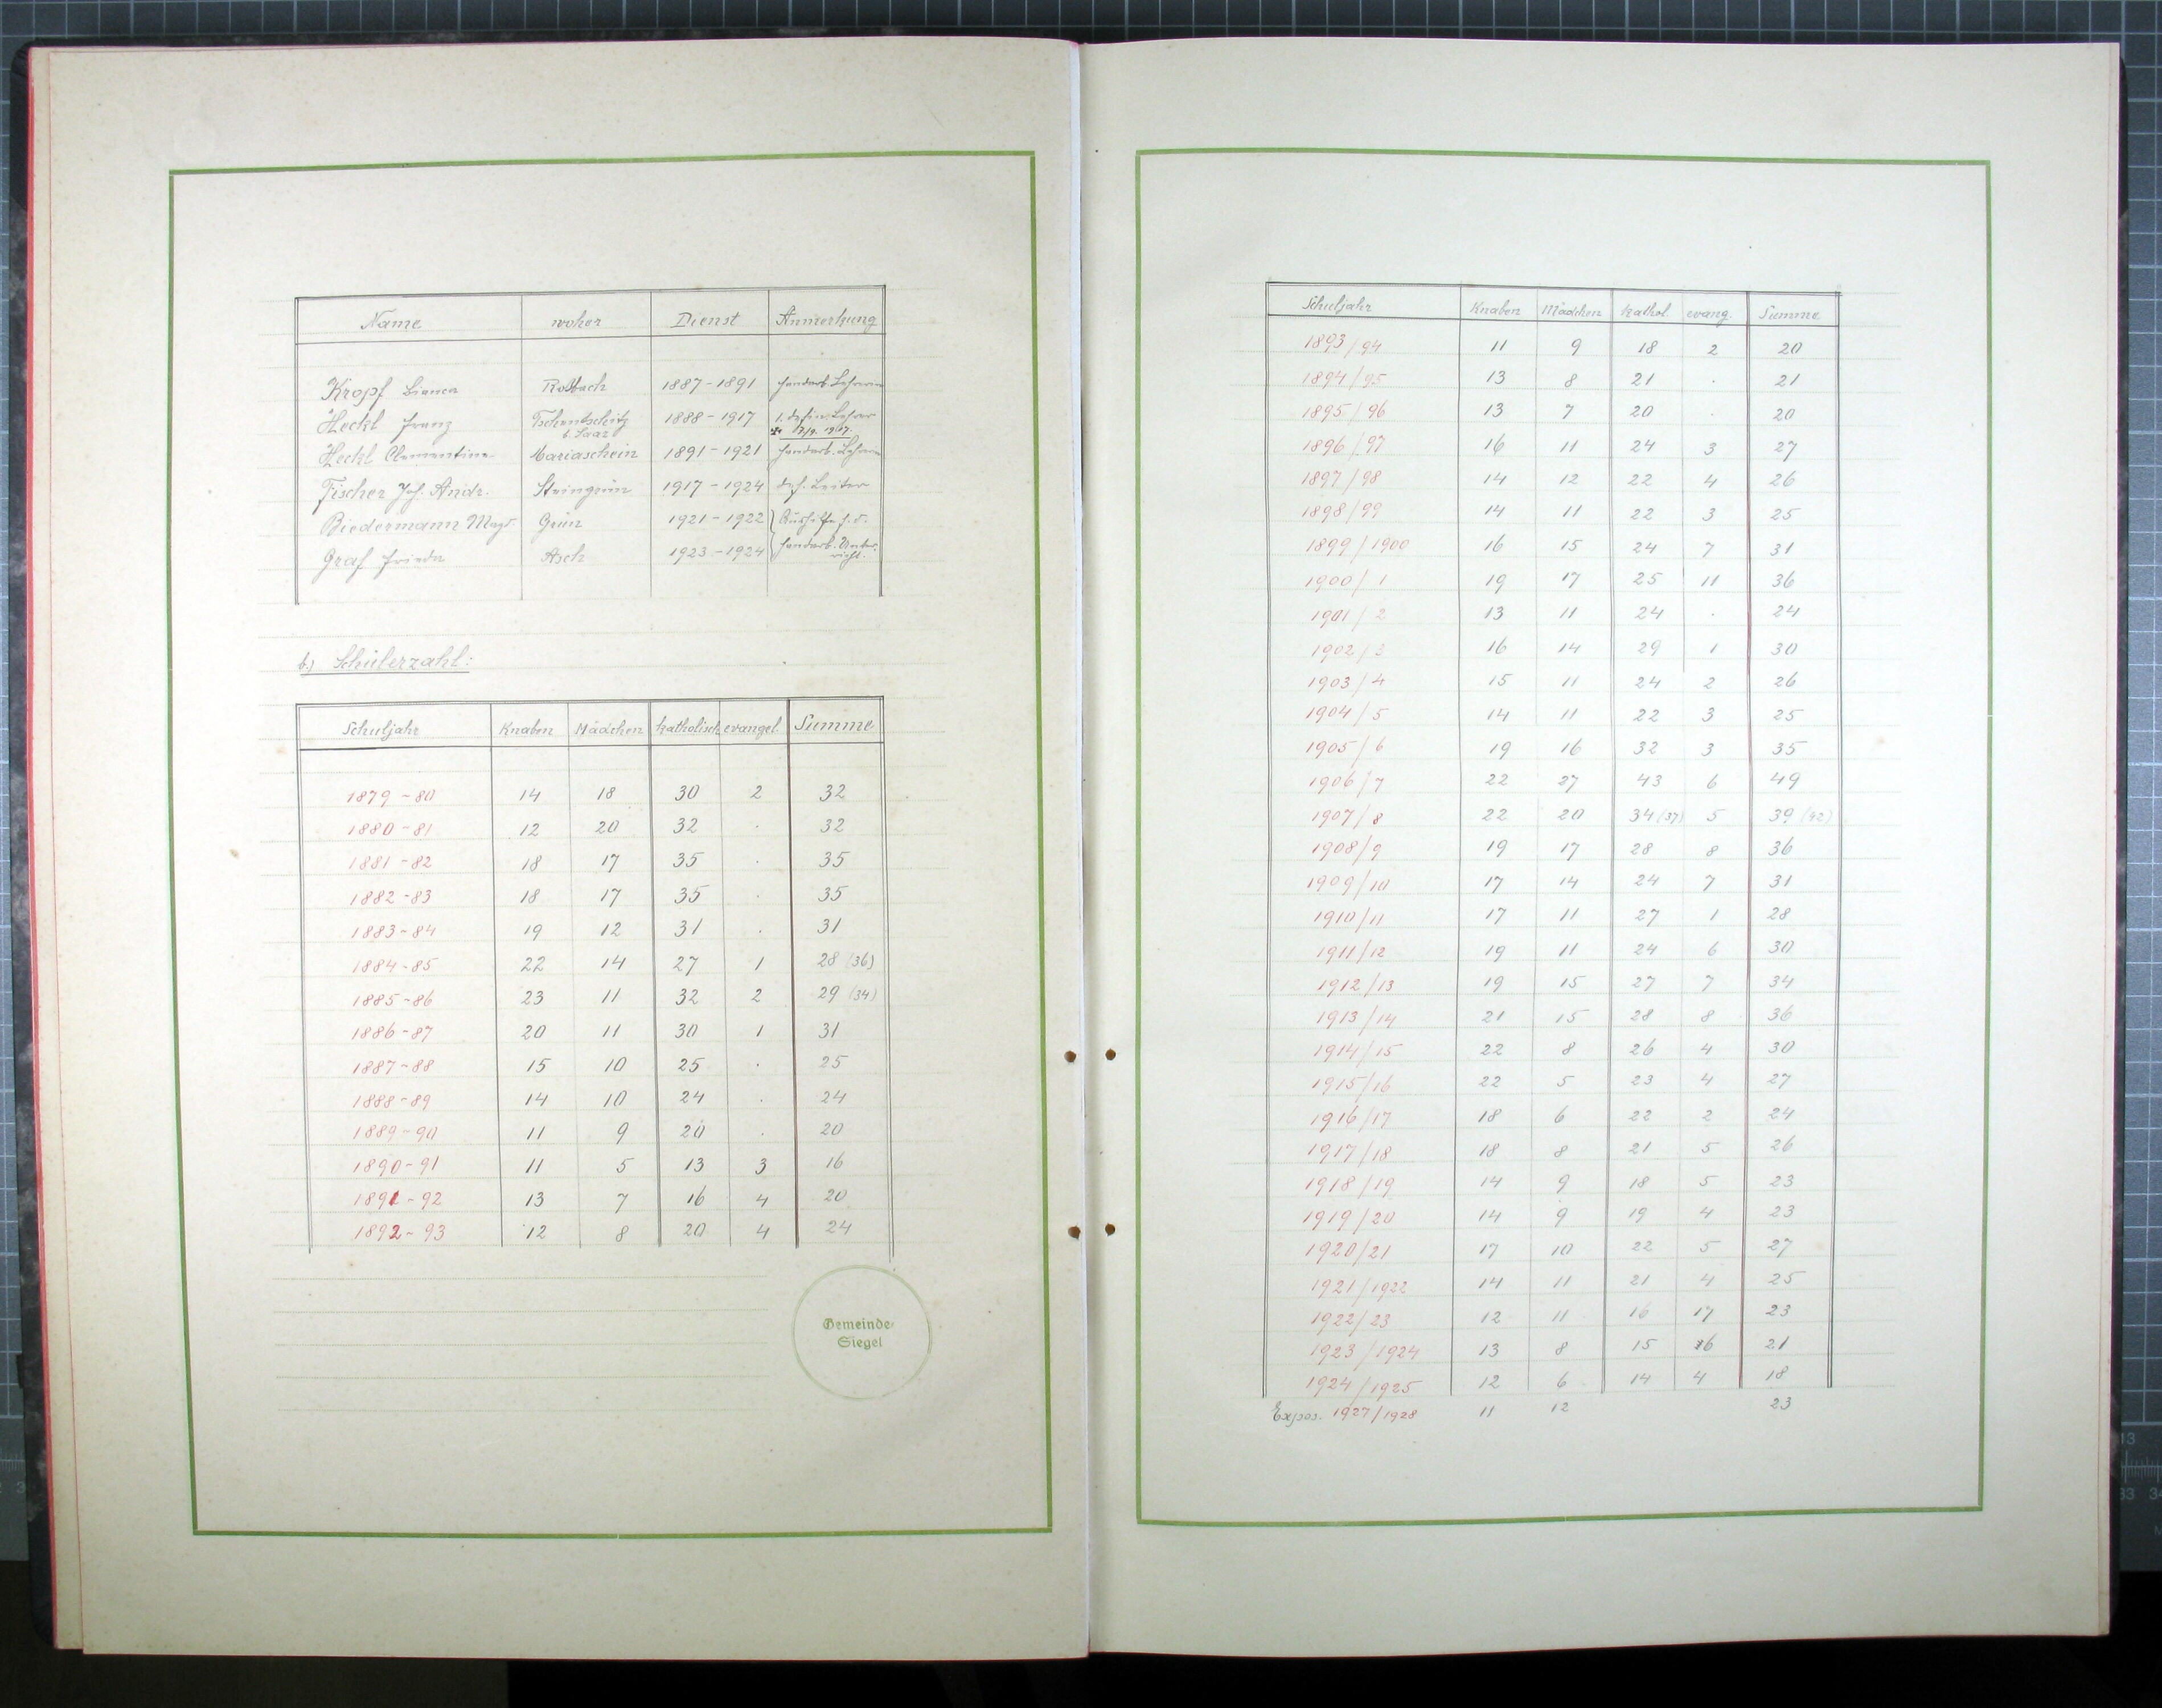 Name woher Dienst Anmerkung
Kropf Bianca Roßbach 1887-1891 Handarb. Lehrerin
Heckl Franz Tschentschitz b. Saaz 1888-1917 1. defin. Lehrer
Heckl Clementine Mariaschein 1891-1921 Handarb. Lehrerin
Fischer Joh. Andr. Steingrün 1917-1924 def. Leiter
Biedermann Magd Grün 1921-1922 Aushilfe f. d.
Graf Frieda Asch 1923-1924 Handarb. Unterricht.
b.) Schülerzahl:
Schuljahr Knaben Mädchen katholisch evangel. Summe
1879-80 14 18 30 2 32
1880-81 12 20 32 . 32
1881-82 18 17 35 . 35
1882-83 18 17 35 . 35
1883-84 19 12 31 . 31
1884-85 22 14 27 1 28 (36)
1885-86 23 11 32 2 29 (34)
1886-87 20 11 30 1 31
1887-88 15 10 25 . 25
1888-89 14 10 24 . 24
1889-90 11 9 20 . 20
1890-91 11 5 13 3 16
1891-92 13 7 16 4 20
1892-93 12 8 20 4 24
Gemeinde-
Siegel
Schuljahr Knaben Mädchen kathol. evang. Summe
1893/94 11 9 18 2 20
1894/95 13 8 21 . 21
1895/96 13 7 20 . 20
1896/97 16 11 24 3 27
1897/98 14 12 22 4 26
1898/99 14 11 22 3 25
1899/1900 16 15 24 7 31
1900/1 19 17 25 11 36
1901/2 13 11 24 . 24
1902/3 16 14 29 1 30
1903/4 15 11 24 2 26
1904/5 14 11 22 3 25
1905/6 19 16 32 3 35
1906/7 22 27 43 6 49
1907/8 22 20 34 (37) 5 39 (42)
1908/9 19 17 28 8 36
1909/10 17 14 24 7 31
1910/11 17 11 27 1 28
1911/12 19 11 24 6 30
1912/13 19 15 27 7 34
1913/14 21 15 28 8 36
1914/15 22 8 26 4 30
1915/16 22 5 23 4 27
1916/17 18 6 22 2 24
1917/18 18 8 21 5 26
1918/19 14 9 18 5 23
1919/20 14 9 19 4 23
1920/21 17 10 22 5 27
1921/1922 14 11 21 4 25
1922/23 12 11 16 17 23
1923/1924 13 8 15 6 21
1924/1925 12 6 14 4 18
Expos. 1927/1928 11 12 23